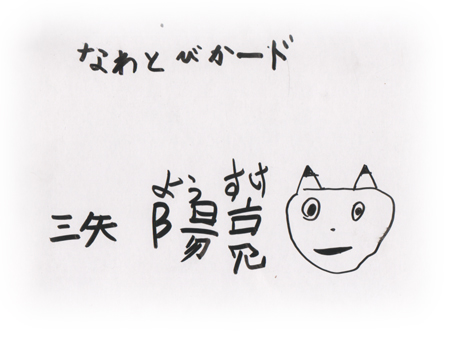 なわとびカード
よう すけ
三矢 陽亮